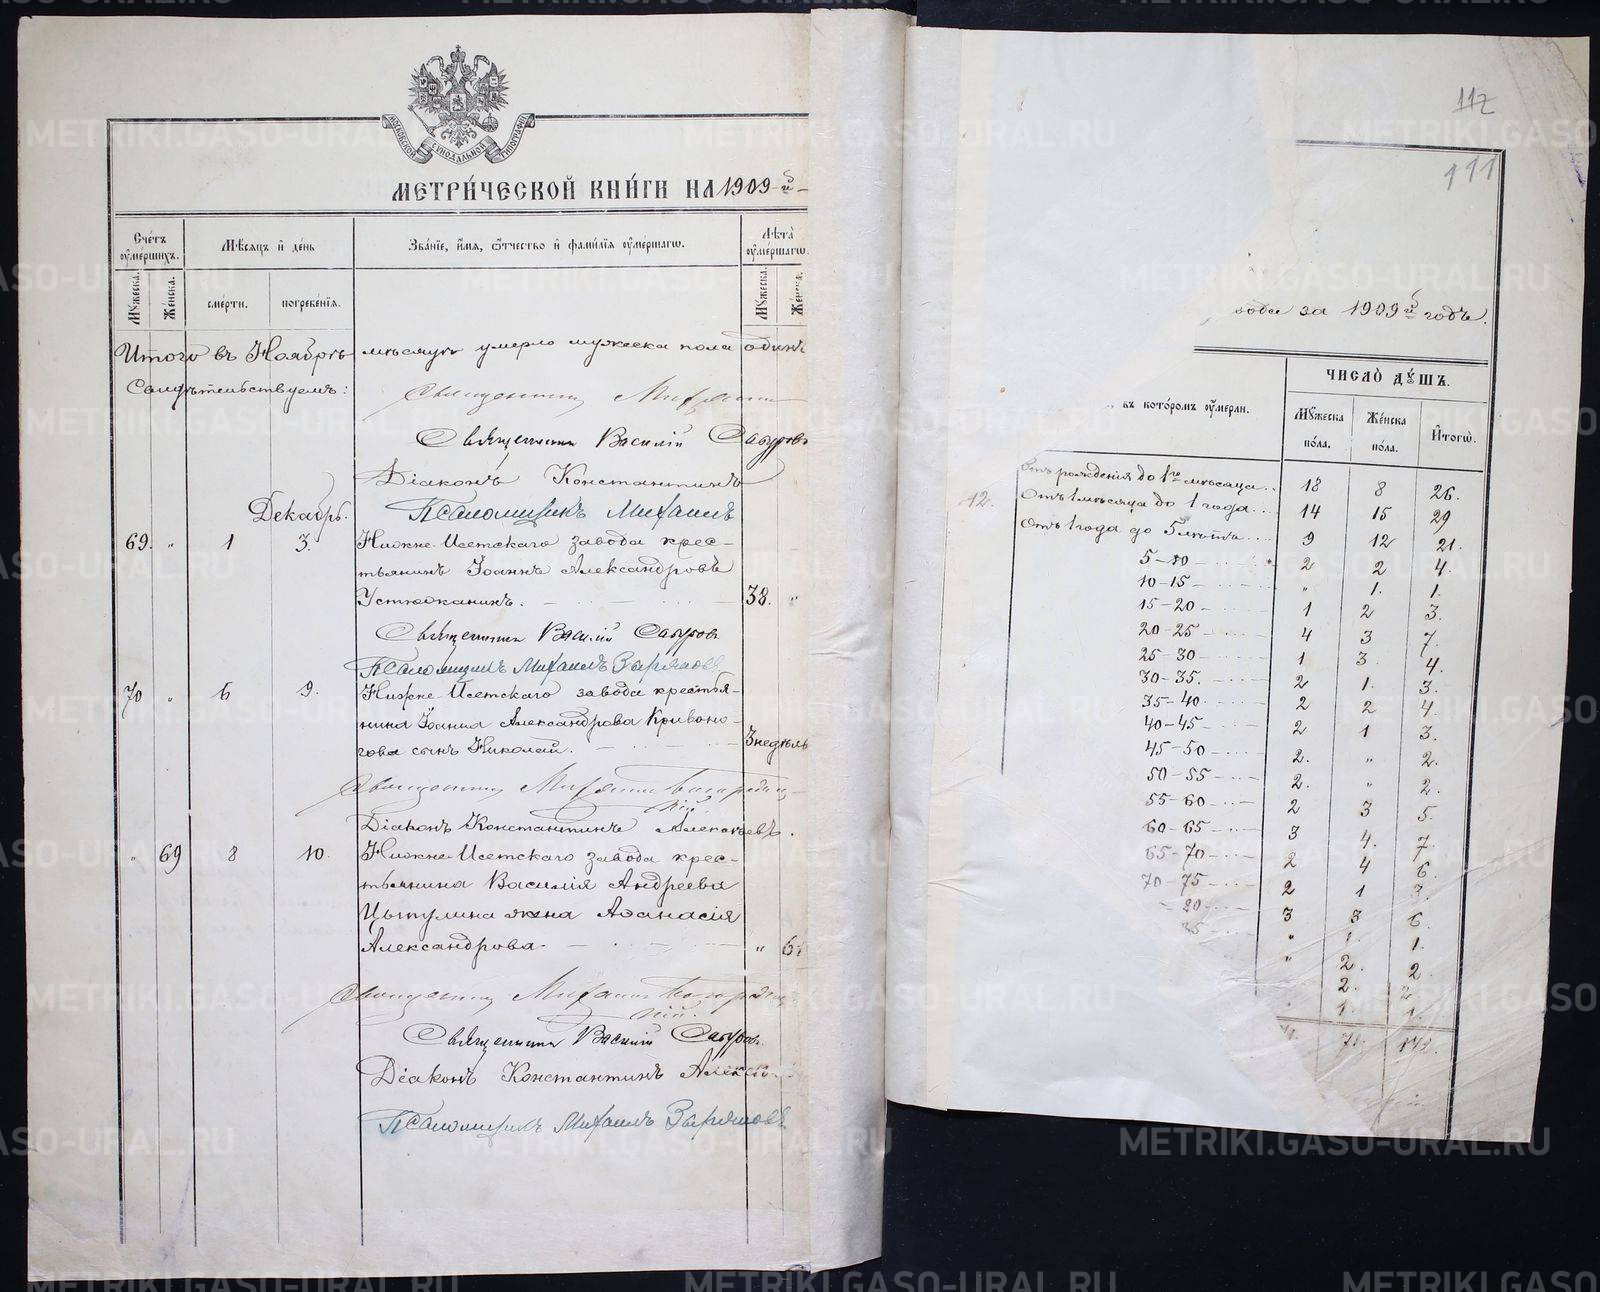 МОСКОВСКОЙ СѴНОДАЛЬНОЙ ТИПОГРАФІИ
МЕТРИ́ЧЕСКОЙ КНИ́ГИ НА 1909-й
Сче́тъ ѹ҆ме́ршихъ.
Мѣ́сяцъ и҆ де́нь
Зва́нїе, и҆́мя, ѻ҆́тчество и҆ фами́лїя ѹ҆ме́ршагѡ.
Лѣ́та ѹ҆ме́ршагѡ.
Мꙋ́жеска.
Же́нска.
сме́рти.
погребе́нїя.
Мꙋ́жеска.
Итого въ Ноябрѣ мѣсяцѣ умерло мужеска пола одинъ
Свидѣтельствуемъ:
Священникъ
Священникъ Василій Сабуровъ
Діаконъ Константинъ
Декабрь.
Псаломщикъ Михаилъ
69. " 1 3. Нижне-Исетскаго завода крес-
тьянинъ Іоаннъ Александровъ
Устюжанинъ. 38. "
Священникъ Василій Сабуровъ
Псаломщикъ Михаилъ Зыряновъ
70 " 6 9. Нижне-Исетскаго завода крестья-
нина Іоанна Александрова Кривоно-
гова сынъ Николай. 3 недѣль
Священникъ
Діаконъ Константинъ Алексѣевъ.
" 69 8 10. Нижне-Исетскаго завода крес-
тьянина Василія Андреева
Цыпулина жена Аѳанасія
Александрова. "
Священникъ
Священникъ Василій Сабуровъ
Діаконъ Константинъ
Псаломщикъ Михаилъ Зыряновъ
112
111
вода за 1909й годъ.
въ кото́ромъ ѹ҆́мерли.
ЧИСЛО̀ ДꙊ́ШЪ.
Мꙋ́жеска по́ла.
Же́нска по́ла.
И҆того̀.
12.
Отъ рожденія до 1го мѣсяца.. 18 8 26.
Отъ 1 мѣсяца до 1 года... 14 15 29
Отъ 1 года до 5 лѣтъ.... 9 12 21.
5-10 2 2 4.
10-15 " 1. 1.
15-20 1 2 3.
20-25 4 3 7.
25-30 1 3. 4.
30-35. 2 1. 3.
35-40 2 2 4.
40-45 2 1 3.
45-50 2. " 2.
50-55 2. " 2.
55-60 2 3 5.
60-65 3 4. 7.
65-70 2 4 6.
70-75 2 1 3.
3 3 6.
" 1. 1.
" 2. 2.
2. 2.
1. 1.
71. 142.
METRIKI.GASO-URAL.RU